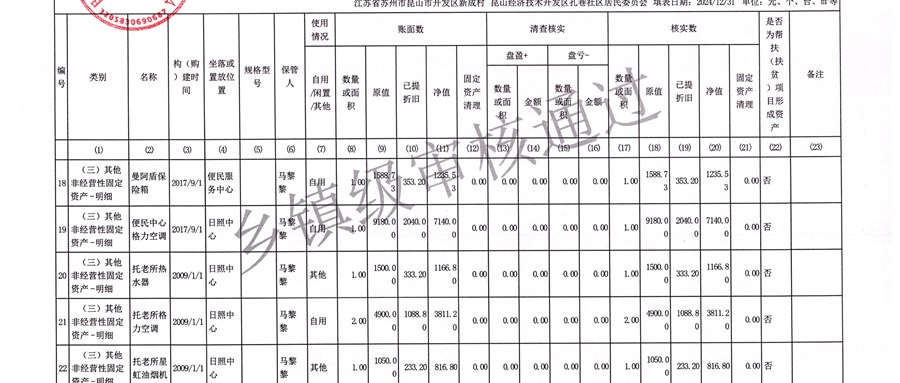 江苏省苏州市昆山市开发区新成村 昆山经济技术开发区孔巷社区居民委员会 填表日期：2024/12/31 单位：元、个、台、亩等
3205830690687
编号 类别 名称 构（购）建时间 坐落或置放位置 规格型号 保管人 使用情况 账面数 清查核实 核实数 是否为帮扶（扶贫）项目形成资产 备注
盘盈+ 盘亏-
自用/闲置/其他 数量或面积 原值 已提折旧 净值 固定资产清理 数量或面积 金额 数量或面积 金额 数量或面积 原值 已提折旧 净值 固定资产清理
(1) (2) (3) (4) (5) (6) (7) (8) (9) (10) (11) (12) (13) (14) (15) (16) (17) (18) (19) (20) (21) (22) (23)
18 （三）其他非经营性固定资产-明细 曼阿盾保险箱 2017/9/1 便民服务中心 马黎黎 自用 1.00 1588.73 353.20 1235.53 0.00 0.00 0.00 0.00 0.00 1.00 1588.73 353.20 1235.53 0.00 否
19 （三）其他非经营性固定资产-明细 便民中心格力空调 2017/9/1 日照中心 马黎黎 自用 1.00 9180.00 2040.00 7140.00 0.00 0.00 0.00 0.00 0.00 1.00 9180.00 2040.00 7140.00 0.00 否
20 （三）其他非经营性固定资产-明细 托老所热水器 2009/1/1 日照中心 马黎黎 其他 1.00 1500.00 333.20 1166.80 0.00 0.00 0.00 0.00 0.00 1.00 1500.00 333.20 1166.80 0.00 否
21 （三）其他非经营性固定资产-明细 托老所格力空调 2009/1/1 日照中心 马黎黎 自用 2.00 4900.00 1088.80 3811.20 0.00 0.00 0.00 0.00 0.00 2.00 4900.00 1088.80 3811.20 0.00 否
22 （三）其他非经营性固定资产-明细 托老所星虹油烟机 2009/1/1 日照中心 马黎黎 其他 1.00 1050.00 233.20 816.80 0.00 0.00 0.00 0.00 0.00 1.00 1050.00 233.20 816.80 0.00 否
乡镇级审核通过